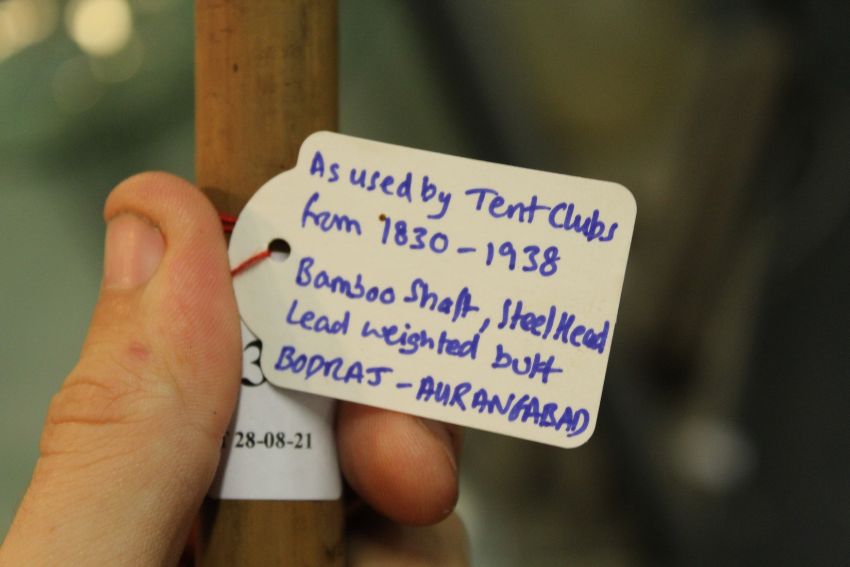 As used by Tent Clubs
from 1830 - 1938
Bamboo Shaft, Steel Head
Lead weighted butt
BODRAJ - AURANGABAD
3
28-08-21